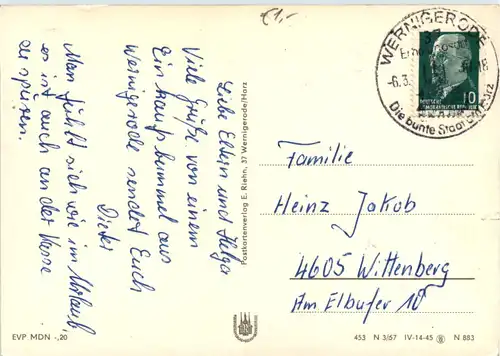 €1,-
Liebe Eltern und Helga
Viele Grüße von einem
Einkaufsbummel aus
Wernigerode sendet Euch
Dieter
Man fühlt sich wie im Urlaub,
es ist auch an der Kasse
zu spüren.
Postkartenverlag E. Riehn, 37 Wernigerode/Harz
WERNIGERODE
-6.3.
18
Die bunte Stadt am Harz
10
DEUTSCHE
DEMOKRATISCHE REPUBLIK
Familie
Heinz Jakob
4605 Wittenberg
Am Elbufer 10
EVP MDN -,20
453 N 3/67 IV-14-45 N 883